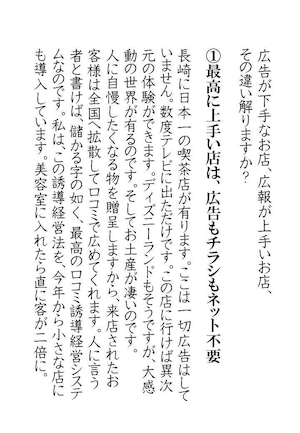 広告が下手なお店、広報が上手いお店、
その違い解りますか?
①最高に上手い店は、広告もチラシもネット不要
長崎に日本一の喫茶店が有ります。ここは一切広告はして
いません。数度テレビに出ただけです。この店に行けば異次
元の体験ができます。ディズニーランドもそうですが、大感
動の世界が有るのです。そしてお土産が凄いのです。
人に自慢したくなる物を贈呈しますから、来店されたお
客様は全国へ拡散して口コミで広めてくれます。人に言う
者と書けば、儲かる字の如く、最高の口コミ誘導経営システ
ムなのです。私は、この誘導経営法を、今年から小さな店に
も導入しています。美容室に入れたら直に客が二倍に。